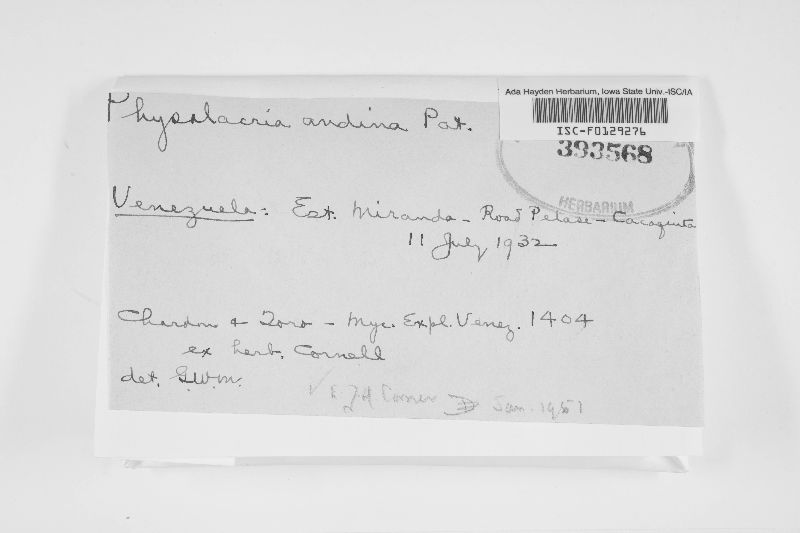 Ada Hayden Herbarium, Iowa State Univ.-ISC/IA
ISC-F0129276
393568
HERBARIUM
Physalacria andina Pat.
Venezuela: Est. Miranda - Road Petase - Cacaguita
11 July 1932
Chardon & Toro - Myc. Expl. Venez. 1404
ex herb. Cornell
det. G.W.M.
E.J.H Corner Jan. 1951